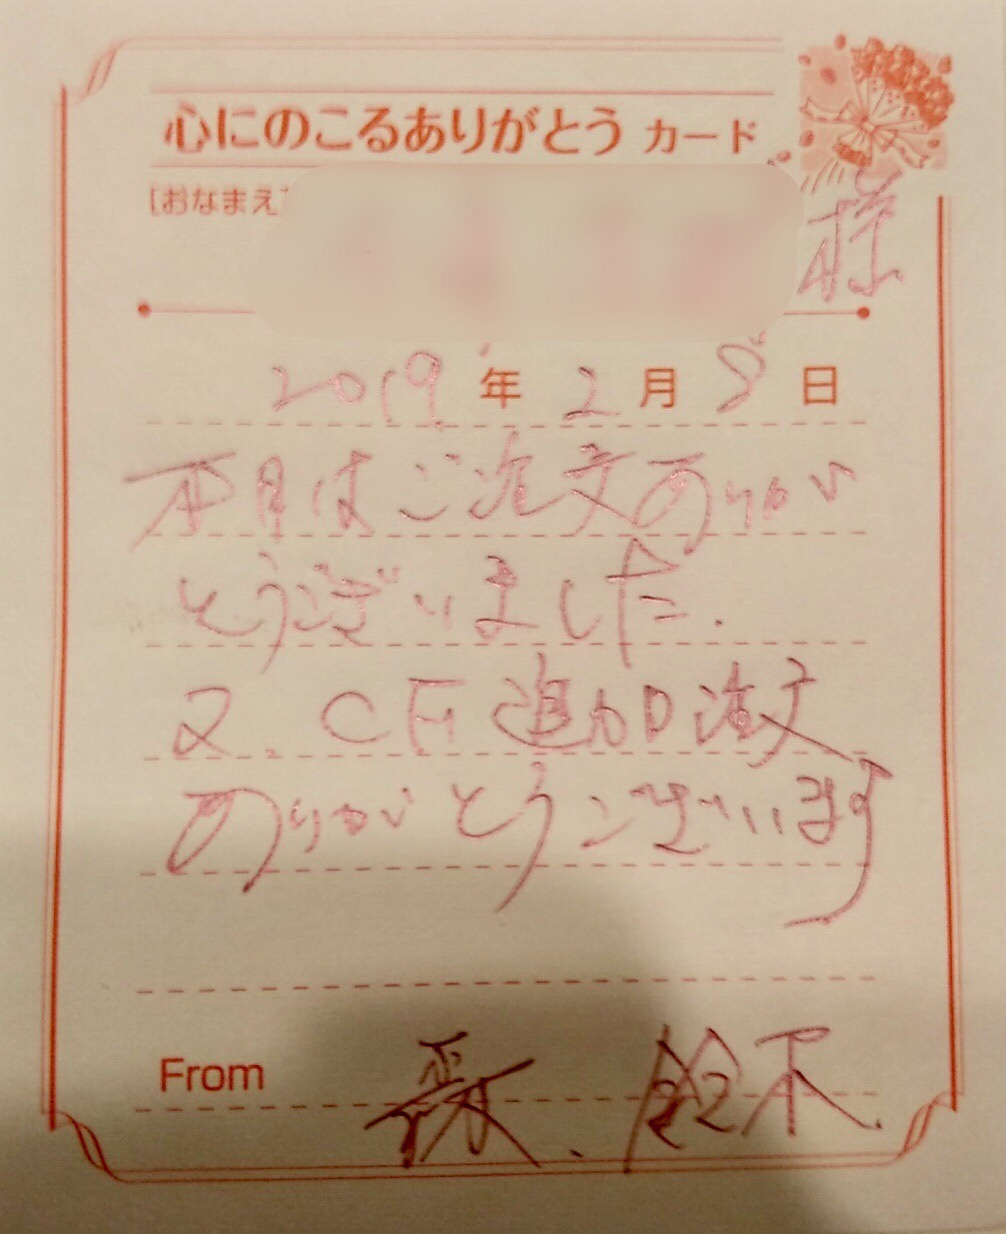 心にのこるありがとう カード
[おなまえ] 様
2019年 2月 8日
本日はご注文ありが
とうございました.
又、CF追加注文
ありがとうございます
From 鈴木